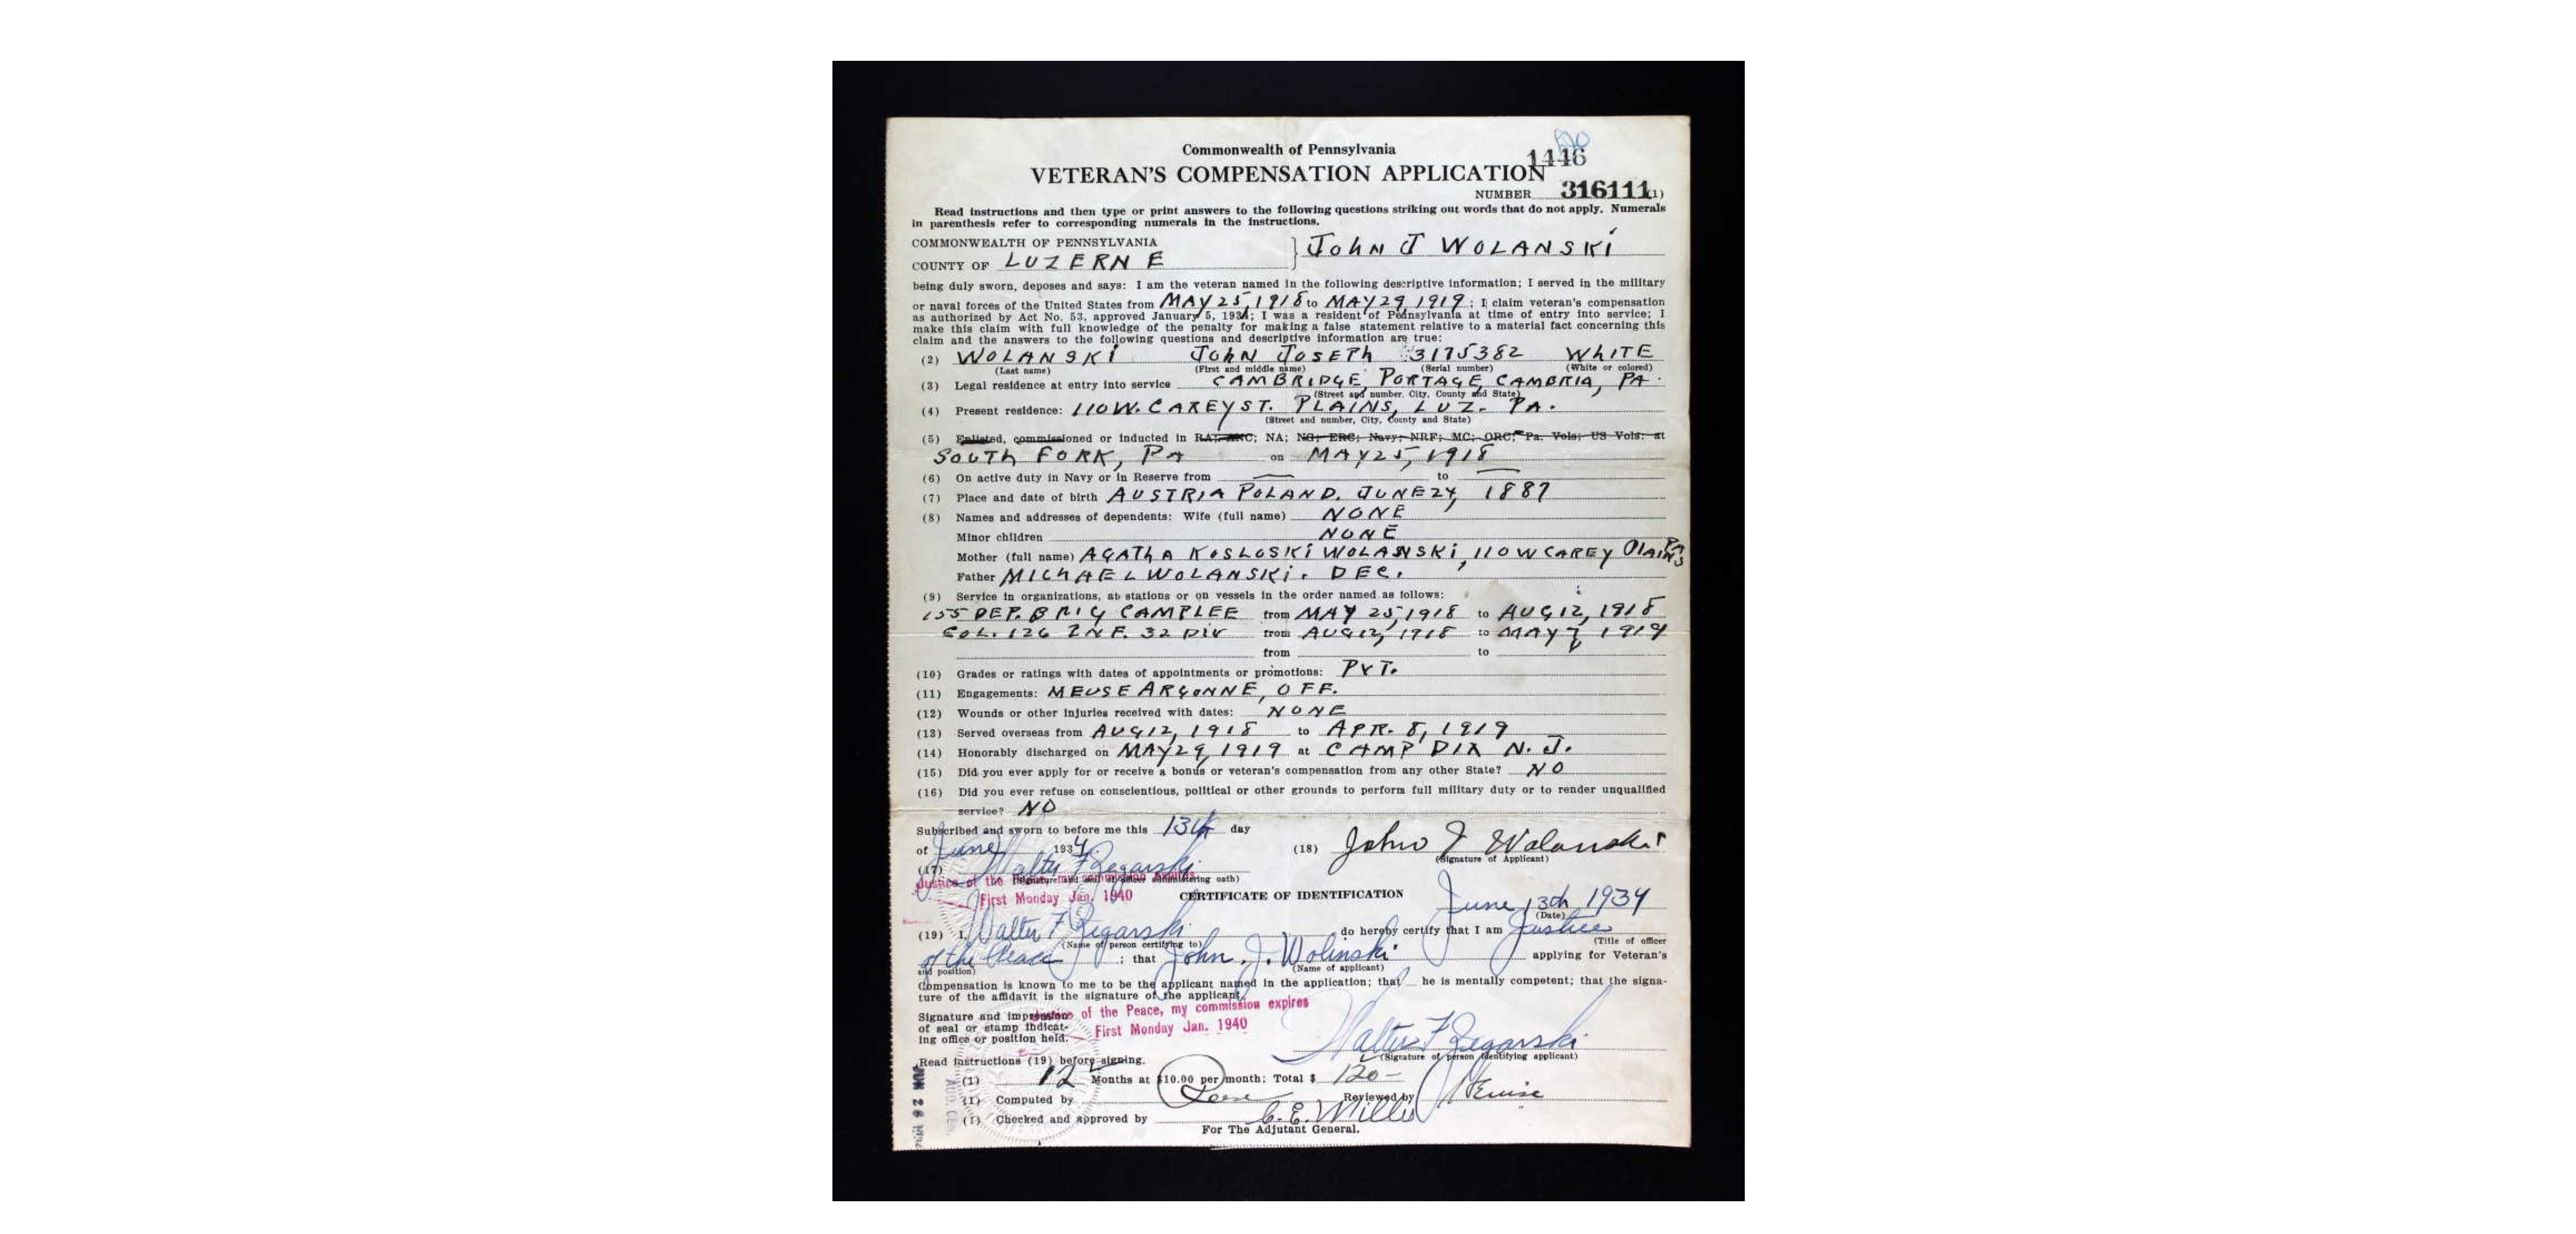 1446
Commonwealth of Pennsylvania
VETERAN'S COMPENSATION APPLICATION
NUMBER 316111 (1)
Read instructions and then type or print answers to the following questions striking out words that do not apply. Numerals
in parenthesis refer to corresponding numerals in the instructions.
COMMONWEALTH OF PENNSYLVANIA
COUNTY OF LUZERNE } JOHN J WOLANSKI
being duly sworn, deposes and says: I am the veteran named in the following descriptive information; I served in the military
or naval forces of the United States from MAY 25, 1918 to MAY 29, 1919; I claim veteran's compensation
as authorized by Act No. 53, approved January 5, 1934; I was a resident of Pennsylvania at time of entry into service; I
make this claim with full knowledge of the penalty for making a false statement relative to a material fact concerning this
claim and the answers to the following questions and descriptive information are true:
(2) WOLANSKI JOHN JOSEPH 3175382 WHITE
(Last name) (First and middle name) (Serial number) (White or colored)
(3) Legal residence at entry into service CAMBRIDGE, PORTAGE, CAMBRIA, PA.
(Street and number, City, County and State)
(4) Present residence: 110 W. CAREY ST. PLAINS, LUZ. PA.
(Street and number, City, County and State)
(5) Enlisted, commissioned or inducted in RA; ANC; NA; NG; ERC; Navy; NRF; MC; ORC; Pa. Vols; US Vols: at
SOUTH FORK, PA on MAY 25, 1918
(6) On active duty in Navy or in Reserve from — to —
(7) Place and date of birth AUSTRIA POLAND. JUNE 24, 1887
(8) Names and addresses of dependents: Wife (full name) NONE
Minor children NONE
Mother (full name) AGATHA KOSLOSKI WOLANSKI, 110 W CAREY PLAINS PA
Father MICHAEL WOLANSKI. DEC.
(9) Service in organizations, at stations or on vessels in the order named as follows:
155 DEP. BRIG CAMP LEE from MAY 25, 1918 to AUG 12, 1918
CO L. 126 INF. 32 DIV from AUG 12, 1918 to MAY 7, 1919
from to
(10) Grades or ratings with dates of appointments or promotions: PVT.
(11) Engagements: MEUSE ARGONNE, OFF.
(12) Wounds or other injuries received with dates: NONE
(13) Served overseas from AUG 12, 1918 to APR. 8, 1919
(14) Honorably discharged on MAY 29, 1919 at CAMP DIX N. J.
(15) Did you ever apply for or receive a bonus or veteran's compensation from any other State? NO
(16) Did you ever refuse on conscientious, political or other grounds to perform full military duty or to render unqualified
service? NO
Subscribed and sworn to before me this 13th day
of June 1934
(18) John J Wolanski
(Signature of Applicant)
(17) Walter F Regarski
(Signature and seal of officer administering oath)
Justice of the Peace, my commission expires
First Monday Jan. 1940
CERTIFICATE OF IDENTIFICATION
June 13th 1934
(Date)
(19) I, Walter F Regarski do hereby certify that I am Justice
(Name of person certifying to) (Title of officer
of the Peace ; that John J. Wolinski applying for Veteran's
and position) (Name of applicant)
Compensation is known to me to be the applicant named in the application; that he is mentally competent; that the signa-
ture of the affidavit is the signature of the applicant.
Justice of the Peace, my commission expires
First Monday Jan. 1940
Signature and impression
of seal or stamp indicat-
ing office or position held.
Walter F Regarski
(Signature of person identifying applicant)
Read instructions (19) before signing.
(1) 12 Months at $10.00 per month; Total $ 120-
(1) Computed by Reviewed by
(1) Checked and approved by C. E. Miller
For The Adjutant General.